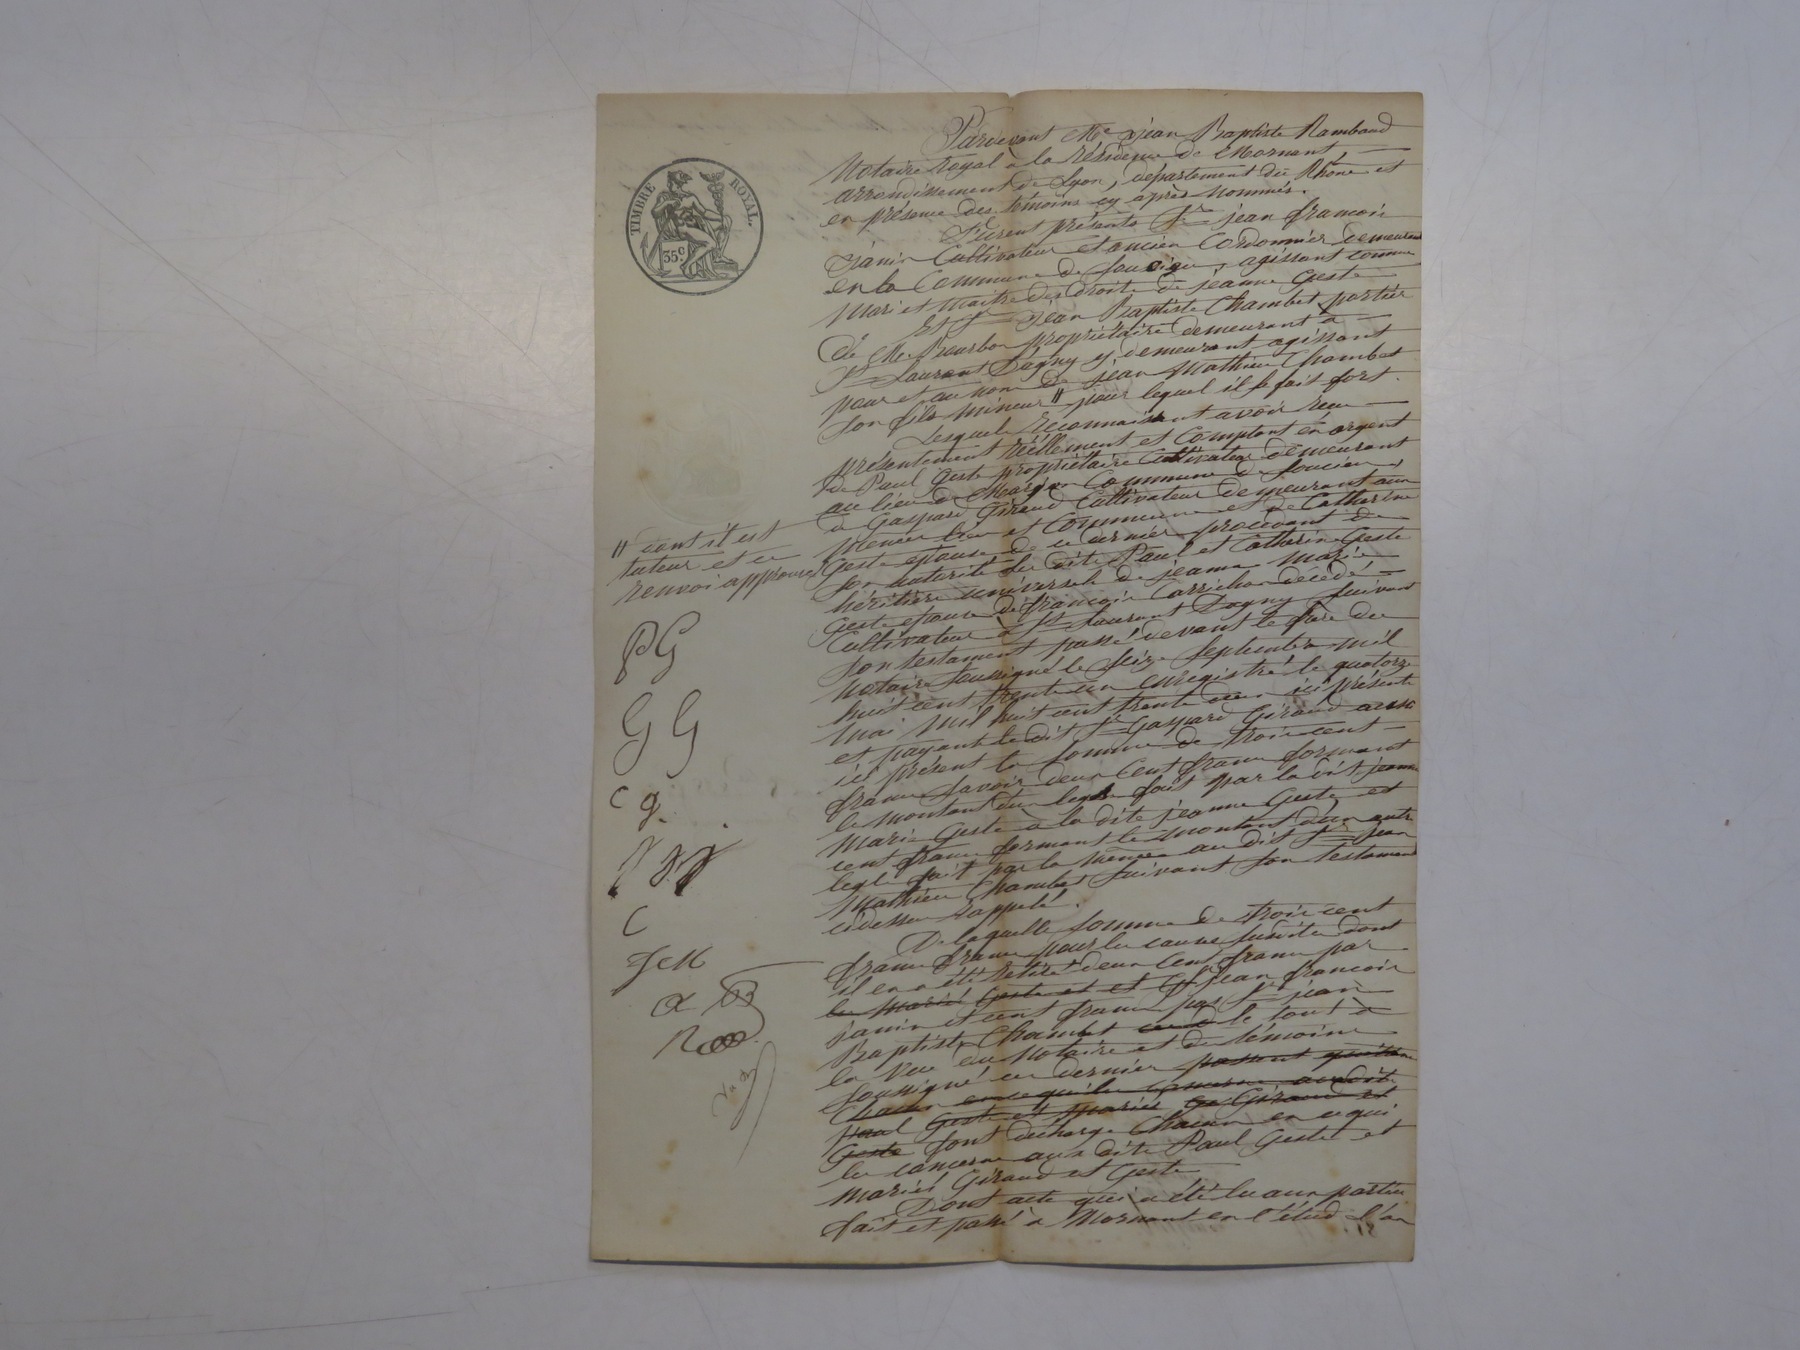 TIMBRE ROYAL.
35c
Pardevant Me Jean Baptiste Rambaud
Notaire royal à la résidence de Mornant,
arrondissement de Lyon, département du Rhône et
en présence des témoins cy après nommés.
Furent présents Sr jean françois
Janin Cultivateur et ancien Cordonnier demeurant
en la Commune de Soucieu, agissant comme
Mari et maitre des droits de jeanne Geste
Et Sr Jean Baptiste Chambet portier
de Mr Bourbon propriétaire demeurant à
St Laurent Dagny y demeurant agissant
pour et au nom de jean Mathieu Chambet
son fils mineur // pour lequel il se fait fort.
Lesquels Reconnaissent avoir reçu
présentement réellement et Comptant en argent
de Paul Geste propriétaire Cultivateur demeurant
au lieu de Marjon Commune de Soucieu,
de Gaspard Giraud Cultivateur demeurant aux
mêmes lieu et Commune et de Catherine
Geste épouse de ce dernier procédant de
son autorité les dits Paul et Catherine Geste
héritiers universels de jeanne Marie
Geste épouse de françois Carrichon décédé
Cultivateur à St Laurent Dagny suivant
son testament passé devant le père du
notaire soussigné le seize septembre mil
huit cent trente un enregistré le quatorze
mai mil huit cent trente deux ici présents
et payant le dit Sr Gaspard Giraud aussi
ici présent la somme de trois cent
francs savoir deux Cent francs formant
le montant du legs fait par la dite jeanne
Marie Geste à la dite jeanne Geste et
cent francs formant le montant d'un autre
legs fait par la même au dit Sr jean
Mathieu Chambet suivant son testament
cidessus rappelé.
De laquelle somme de trois cent
francs francs pour les causes susdites dont
il en a été retiré deux Cent francs par
les mariés Geste et et Sr jean françois
janin et cent francs par Sr jean
Baptiste Chambet le tout à
la Vue du Notaire et des témoins
soussignés ces derniers passent quittance
Chacun en ce qui les concerne aux dits
paul Geste et mariés Giraud et
Geste font décharge Chacun en ce qui
les concerne aux dits Paul Geste et
mariés Giraud et Geste
Dont acte qui a été lu aux parties
fait et passé à Mornant en l'étude l'an
// dont il est
tuteur et ce
renvoi approuvé
PG
GG
C g.
C